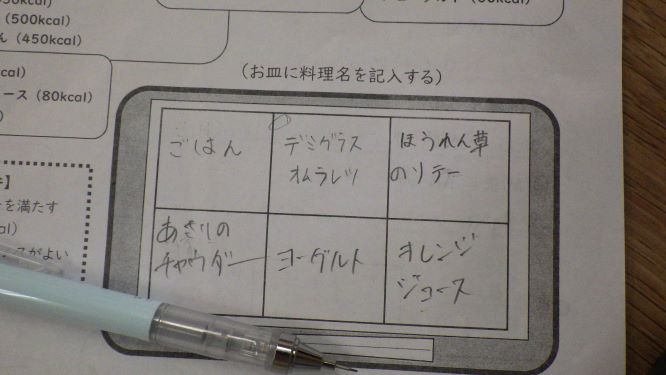 (500kcal)
ん（450kcal）
（お皿に料理名を記入する）
cal）
ース（80kcal）
ごはん
デミグラス
オムラレツ
ほうれん草
のソテー
】
を満たす
がよい
あさりの
チャウダー
ヨーグルト
オレンジ
ジュース